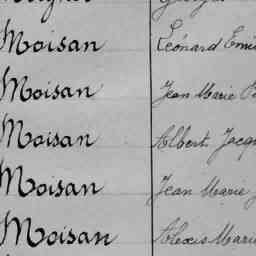 Moisan Léonard
Moisan Jean Marie
Moisan Albert
Moisan Jean Marie
Moisan Alexis Marie